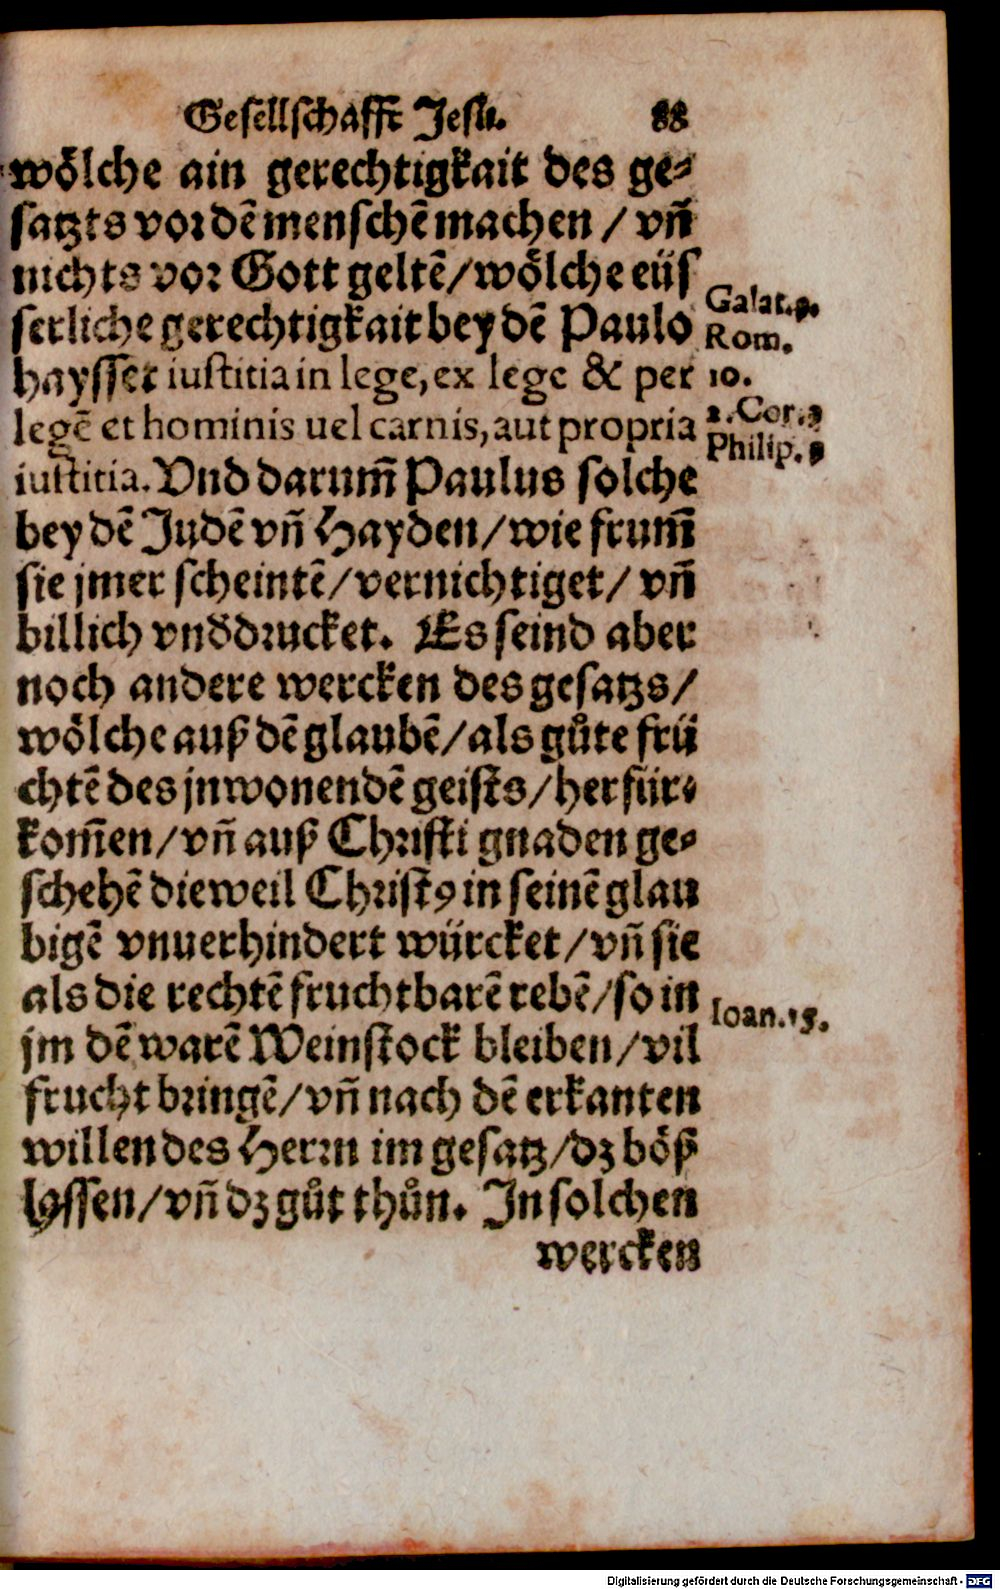 Gesellschafft Jesu. 88
wölche ain gerechtigkait des ge-
satzts vor dē menschē machen / vñ
nichts vor Gott geltē/wölche eüs
serliche gerechtigkait bey dē Paulo
haysset iustitia in lege, ex lege & per
legē et hominis uel carnis, aut propria
iustitia. Vnd darum̃ Paulus solche
bey dē Judē vñ Hayden/wie frum̃
sie jmer scheintē/vernichtiget/ vñ
billich vnddrucket. Es seind aber
noch andere wercken des gesatzs/
wölche auß dē glaubē/als gůte frü
chtē des jnwonendē geists/herfür-
kom̃en/vñ auß Christi gnaden ge-
schehē dieweil Christꝰ in seinē glau
bigē vnuerhindert würcket/vñ sie
als die rechtē fruchtbarē rebē/so in
jm dē warē Weinstock bleiben/vil
frucht bringē/vñ nach dē erkanten
willen des Herrn im gesatz/dz böß
lassen/vñ dz gůt thůn. In solchen
wercken
Galat.
Rom.
10.
Cor.
Philip.
Ioan. 15.
Digitalisierung gefördert durch die Deutsche Forschungsgemeinschaft - DFG